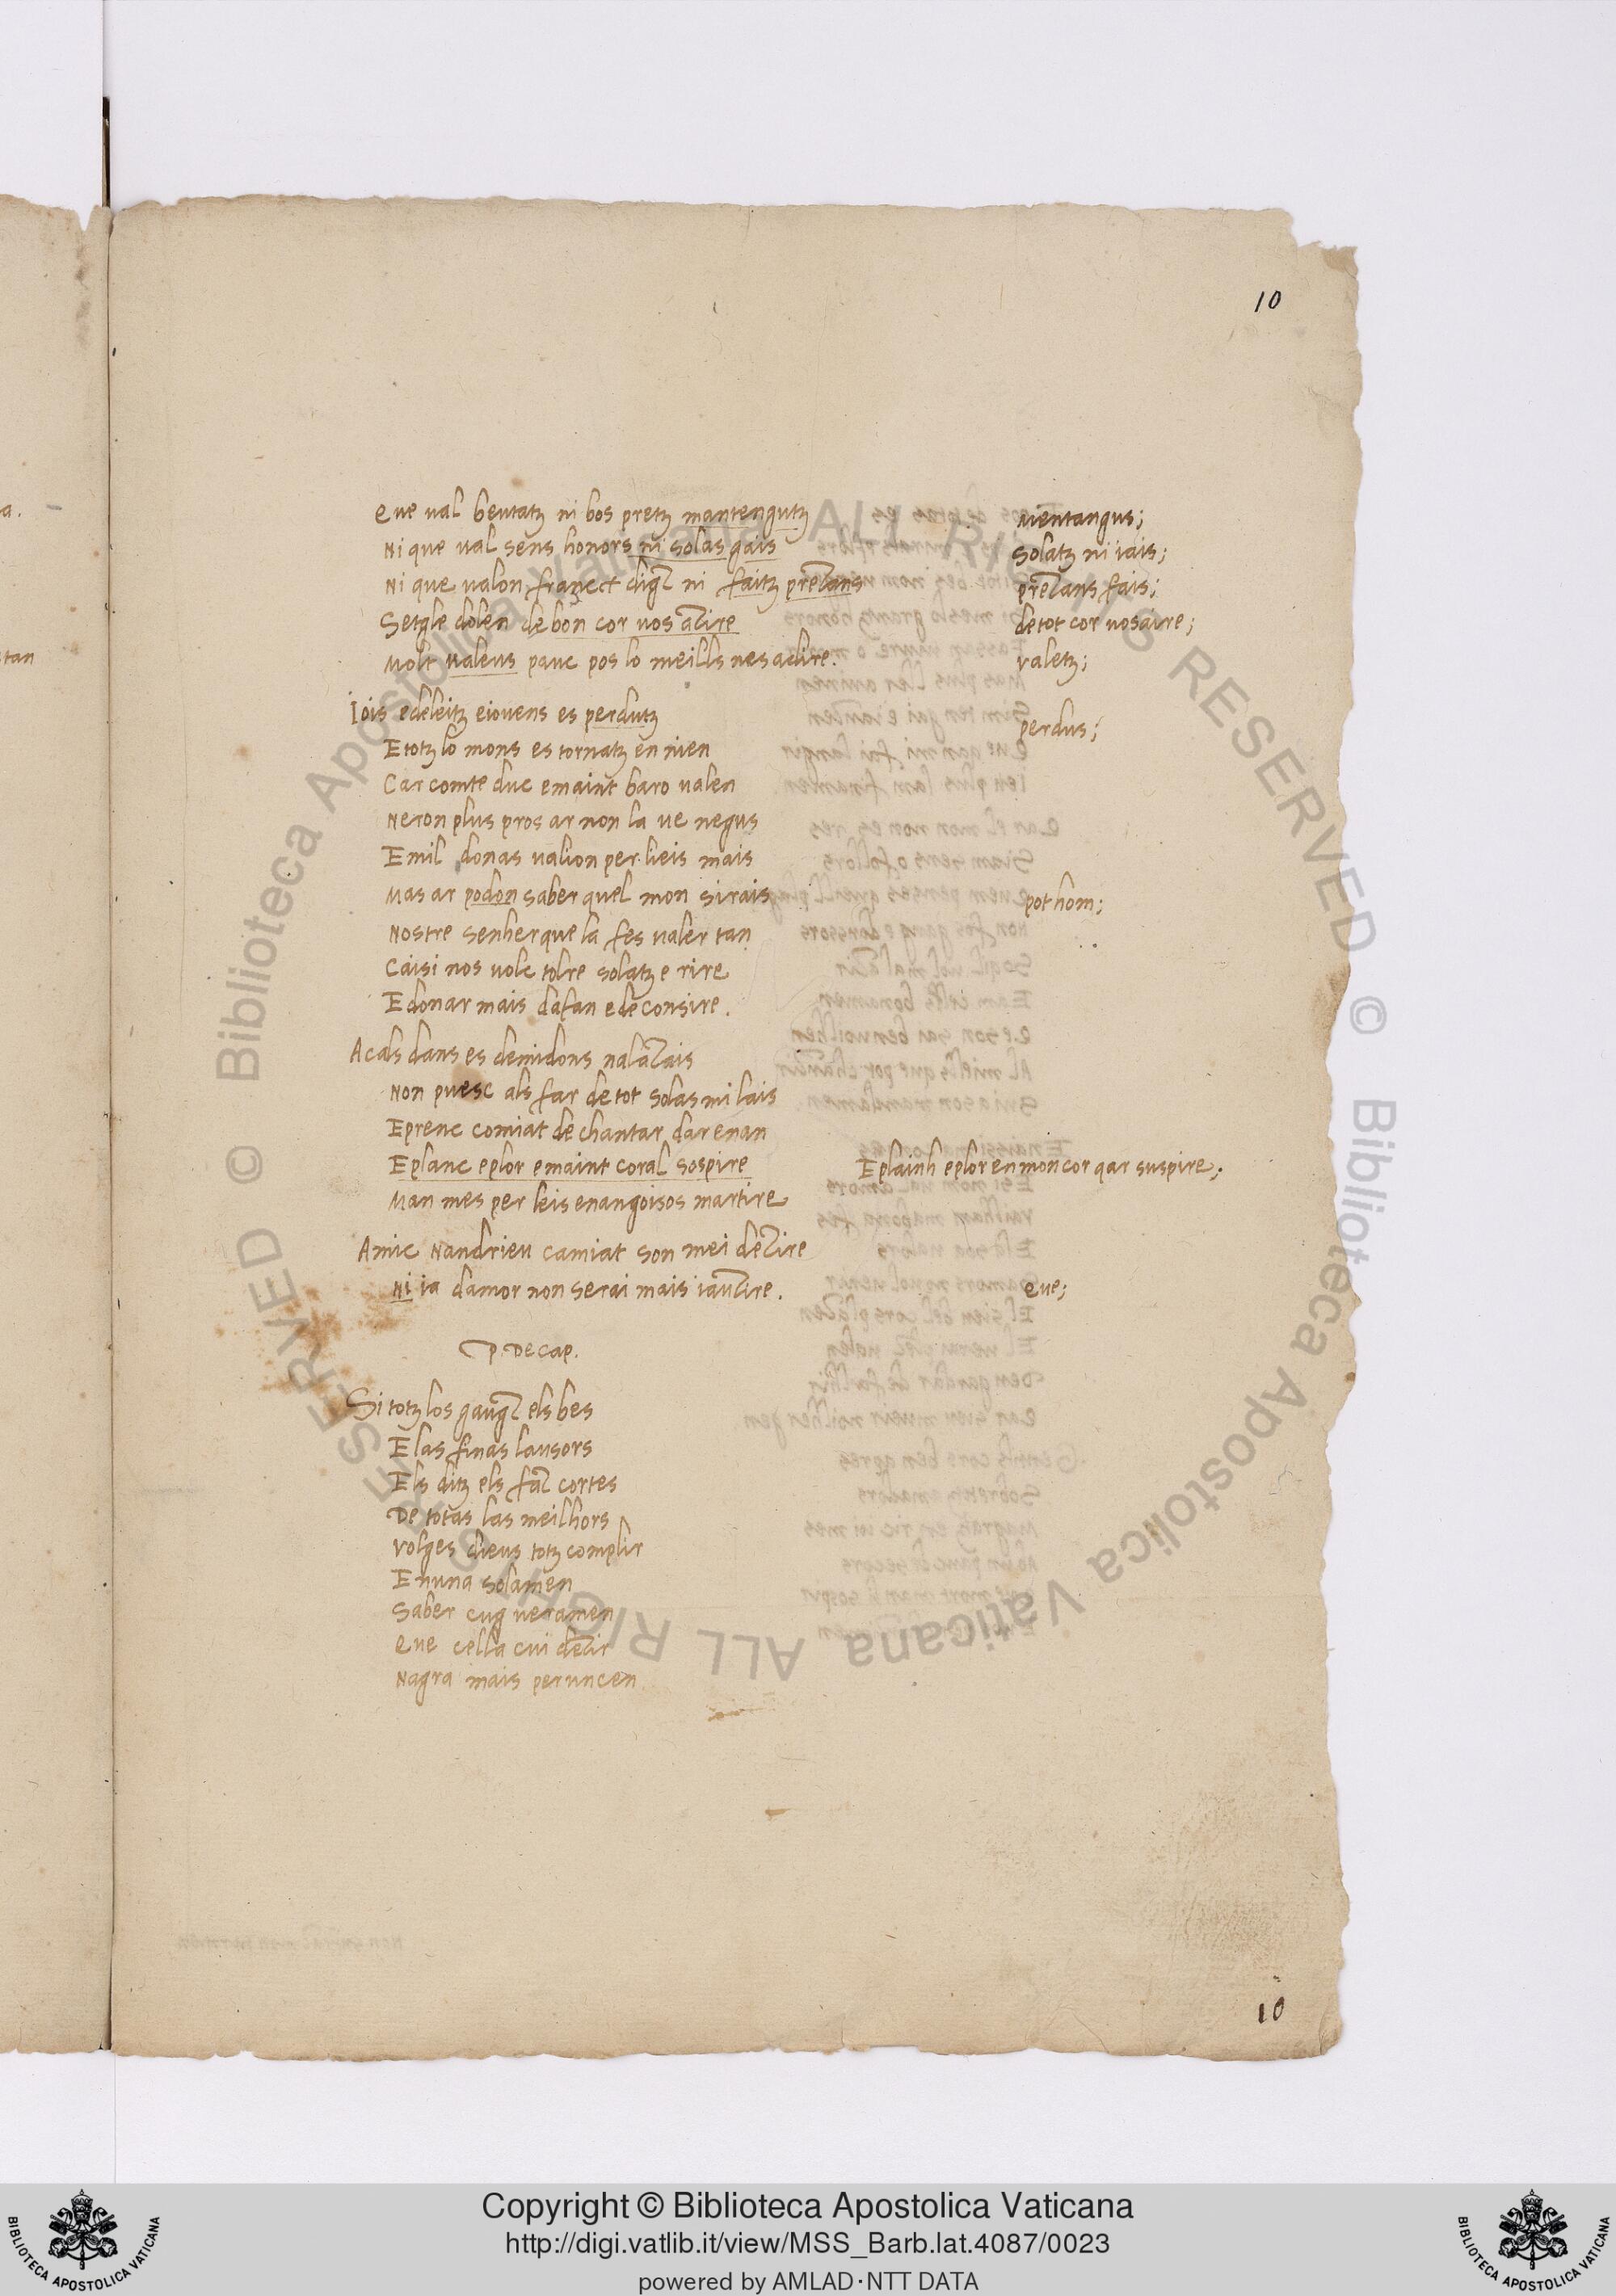 10
Que val beutatz ni bos pretz mantengutz
mentangus;
Ni que val sens honors ni solas gais
Solatz ni iais;
Ni que valon franc
ni faitz
fais;
Setgle dolen de bon cor vos
de tot cor vos
Molt valens pauc pos lo meills nes adire.
valetz;
Iois edeleitz eiovens es perdutz
perdus;
E totz lo mons es tornatz en nien
Car comte duc emaint baro valen
Neron plus pros ar non la ve negus
Emil donas valion per lieis mais
Mas ar podon saber quel mon sirais
pot hom;
Nostre senher que la fes valer tan
Caisi nos volc tolre solatz e rire
E donar mais dafan e de consire.
Acals dans es demidons
Non puesc als far de tot solas mi lais
E prenc comiat de chantar darenan
E planc eplor emaint coral sospire
E plainh eplor en mon cor qar suspire;
Man mes per leis en angoisos martire
Amic Nandrieu camiat son mei
Ni ia damor non serai mais
que;
P. De cap.
Si totz los els bes
E las finas lausors
Els ditz els cortes
De totas las meilhors
Volges dieus totz complir
E nuna solamen
Saber cug veramen
Que cella cui
Nagra mais per un cen
10
a.
tan
© Biblioteca Apostolica Vaticana ALL RIGHTS RESERVED © Biblioteca Apostolica Vaticana ALL RIGHTS RESERVED
BIBLIOTECA APOSTOLICA VATICANA
Copyright © Biblioteca Apostolica Vaticana
http://digi.vatlib.it/view/MSS_Barb.lat.4087/0023
powered by AMLAD·NTT DATA
BIBLIOTECA APOSTOLICA VATICANA